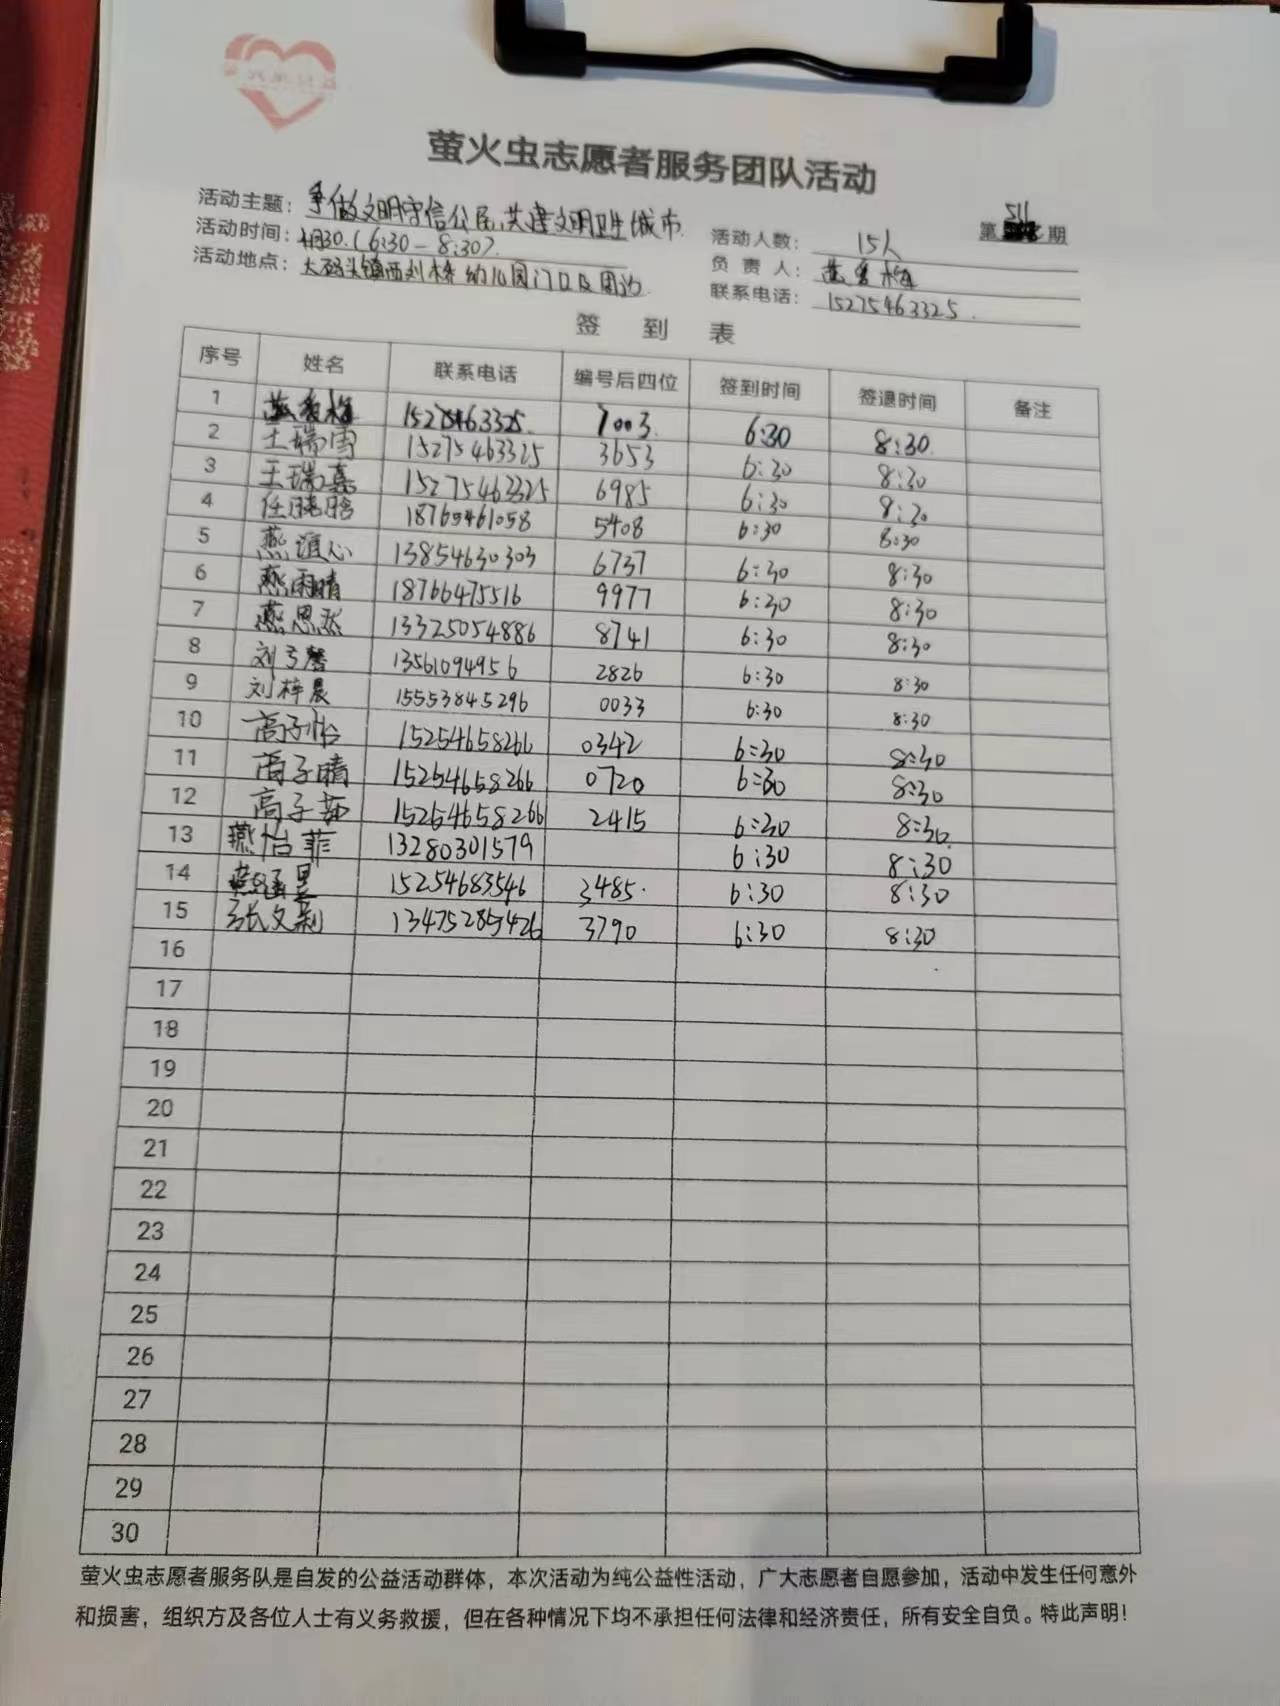 萤火虫志愿者服务团队活动
活动主题：争做文明守信公民,共建文明卫生城市.
活动时间：4月30.(6:30-8:30).
活动地点：大码头镇西刘桥幼儿园门口及周边
第511期
活动人数：15人
负责人：燕秀梅
联系电话：15275463325.
签到表
序号 姓名 联系电话 编号后四位 签到时间 签退时间 备注
1 燕秀梅 15275463325. 7003. 6:30 8:30.
2 王瑞雪 15275463325 3653 6:30 8:30
3 王瑞嘉 15275463325 6985 6:30 8:30
4 任腾晗 18765461058 5408 6:30 8:30
5 燕谊心 13854630303 6737 6:30 8:30
6 燕雨晴 18766475516 9977 6:30 8:30
7 燕思彤 13325054886 8741 6:30 8:30
8 刘弓馨 13561094956 2826 6:30 8:30
9 刘梓晨 15553845296 0033 6:30 8:30
10 高子怡 15254658266 0342 6:30 8:30
11 高子晴 15254658266 0720 6:30 8:30
12 高子茹 15254658266 2415 6:30 8:30.
13 燕怡菲 13280301579 6:30 8:30
14 燕涵昱 15254683546 3485. 6:30 8:30
15 张文彩 13475285426 3790 6:30 8:30
16
17
18
19
20
21
22
23
24
25
26
27
28
29
30
萤火虫志愿者服务队是自发的公益活动群体，本次活动为纯公益性活动，广大志愿者自愿参加，活动中发生任何意外
和损害，组织方及各位人士有义务救援，但在各种情况下均不承担任何法律和经济责任，所有安全自负。特此声明！